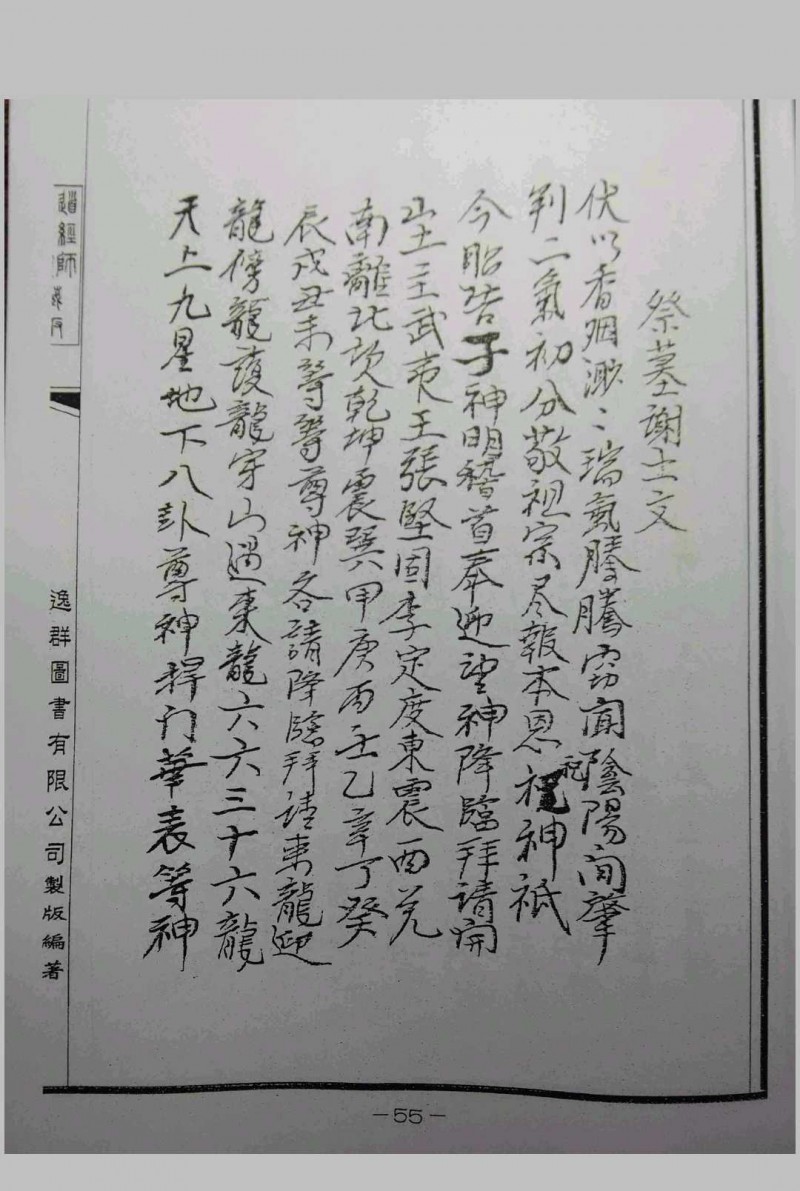 祭墓謝土文
伏以香烟渺〻瑞氣騰騰窃聞陰陽開肇
判二氣初分敬祖宗尽報本恩祀神祇
今昭告子神明稽首奉迎望神降臨拜請開
山土王武夷王張堅固李定度東震西兌
南離北坎乾坤震巽甲庚丙壬乙辛丁癸
辰戌丑未等等尊神各請降臨拜請來龍迎
龍傍龍護龍穿山過來龍六六三十六龍
天上九星地下八卦尊神 門華表等神
經師
逸群圖書有限公司製版編著
－55－